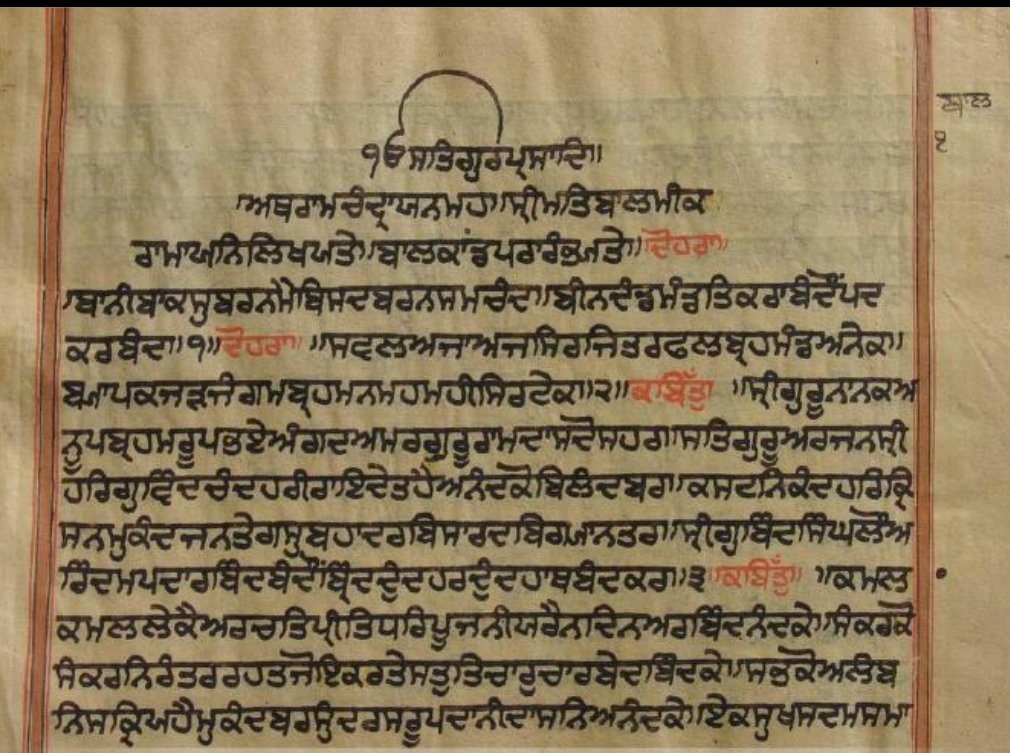 ੧ੳ ਸਤਿਗੁਰਪ੍ਰਸਾਦਿ॥
ਅਥਰਾਮਚੰਦ੍ਰਾਯਨਮਹ॥ਸ੍ਰੀਮਤਿਬਾਲਮੀਕ
ਰਾਮਾਯਨਿਲਿਖਯਤੇ॥ਬਾਲਕਾਂਡਪਰਾਰੰਭ੍ਯਤੇ॥ਦੋਹਰਾ॥
ਬਾਨੀਬਾਕਸੁਬਰਨਮੈਬਿਸਦਬਰਨਸਮਚੰਦ॥ਬੀਨਦੰਡਮੰਡਤਿਕਰਾਬੰਦੌਂਪਦ
ਕਰਬੰਦ॥੧॥ਦੋਹਰਾ॥ਸਵਲਅਜਾਅਜਾਸਿਰਜਿਤਰਫਲਬ੍ਰਹਮੰਡਅਨੇਕ॥
ਬ੍ਯਾਪਕਜੜਜੰਗਮਬ੍ਰਹਮਨਮਹਮਹੀਸਿਰਟੇਕ॥੨॥ਕਬਿੱਤੁ॥ਸ੍ਰੀਗੁਰੂਨਾਨਕਅ
ਨੂਪਬ੍ਰਹਮਰੂਪਭਏਅੰਗਦਅਮਰਗੁਰੂਰਾਮਦਾਸਦੋਸਹਰਾ॥ਸਤਿਗੁਰੂਅਰਜਨਸ੍ਰੀ
ਹਰਿਗੁਵਿੰਦਚੰਦਹਰੀਰਾਇਦੇਤਹੈਅਨੰਦਕੋਬਿਲੰਦਬਰਾ॥ਕਸਟਨਿਕੰਦਹਰਿਕ੍ਰਿ
ਸਨਮੁਕੰਦਜਨਤੇਗਸੁਬਹਾਦਰਬਿਸਾਰਦਬਿਗ੍ਯਾਨਤਰਾ॥ਸ੍ਰੀਗੁਬਿੰਦਸਿੰਘਲੌਅ
ਰਿੰਦਮਪਦਾਰਬਿੰਦਬੰਦੌਂਬ੍ਰਿੰਦਦੁੰਦਹਰਦੁੰਦਹਾਥਬੰਦਕਰਾ॥੩॥ਕਬਿੱਤੁ॥ਕਮਲ
ਕਮਲਲੇਕੈਅਰਚਾਤਿਪ੍ਰੀਤਿਧਰਿਪੂਜਨੀਯਰੈਨਦਿਨਅਰਬਿੰਦਨੰਦਕੇ॥ਸੰਕਰਕੋ
ਸੰਕਰਨਿਰੰਤਰਰਹਤਜੋਇਕਰਤੇਸਤੁਤਿਚਾਰੁਚਾਰਬੇਦਬਿੰਦਕੇ॥ਸਭਕੋਅਲੰਬ
ਨਿਸਕ੍ਰਿਅਹੈਮੁਕੰਦਬਰਸੁੰਦਰਸਰੂਪਦਾਨੀਦਾਸਨਿਅਨੰਦਕੇ॥ਏਕਸੁਖਸਦਮਸਮਾ
ਬਾਲ
੧